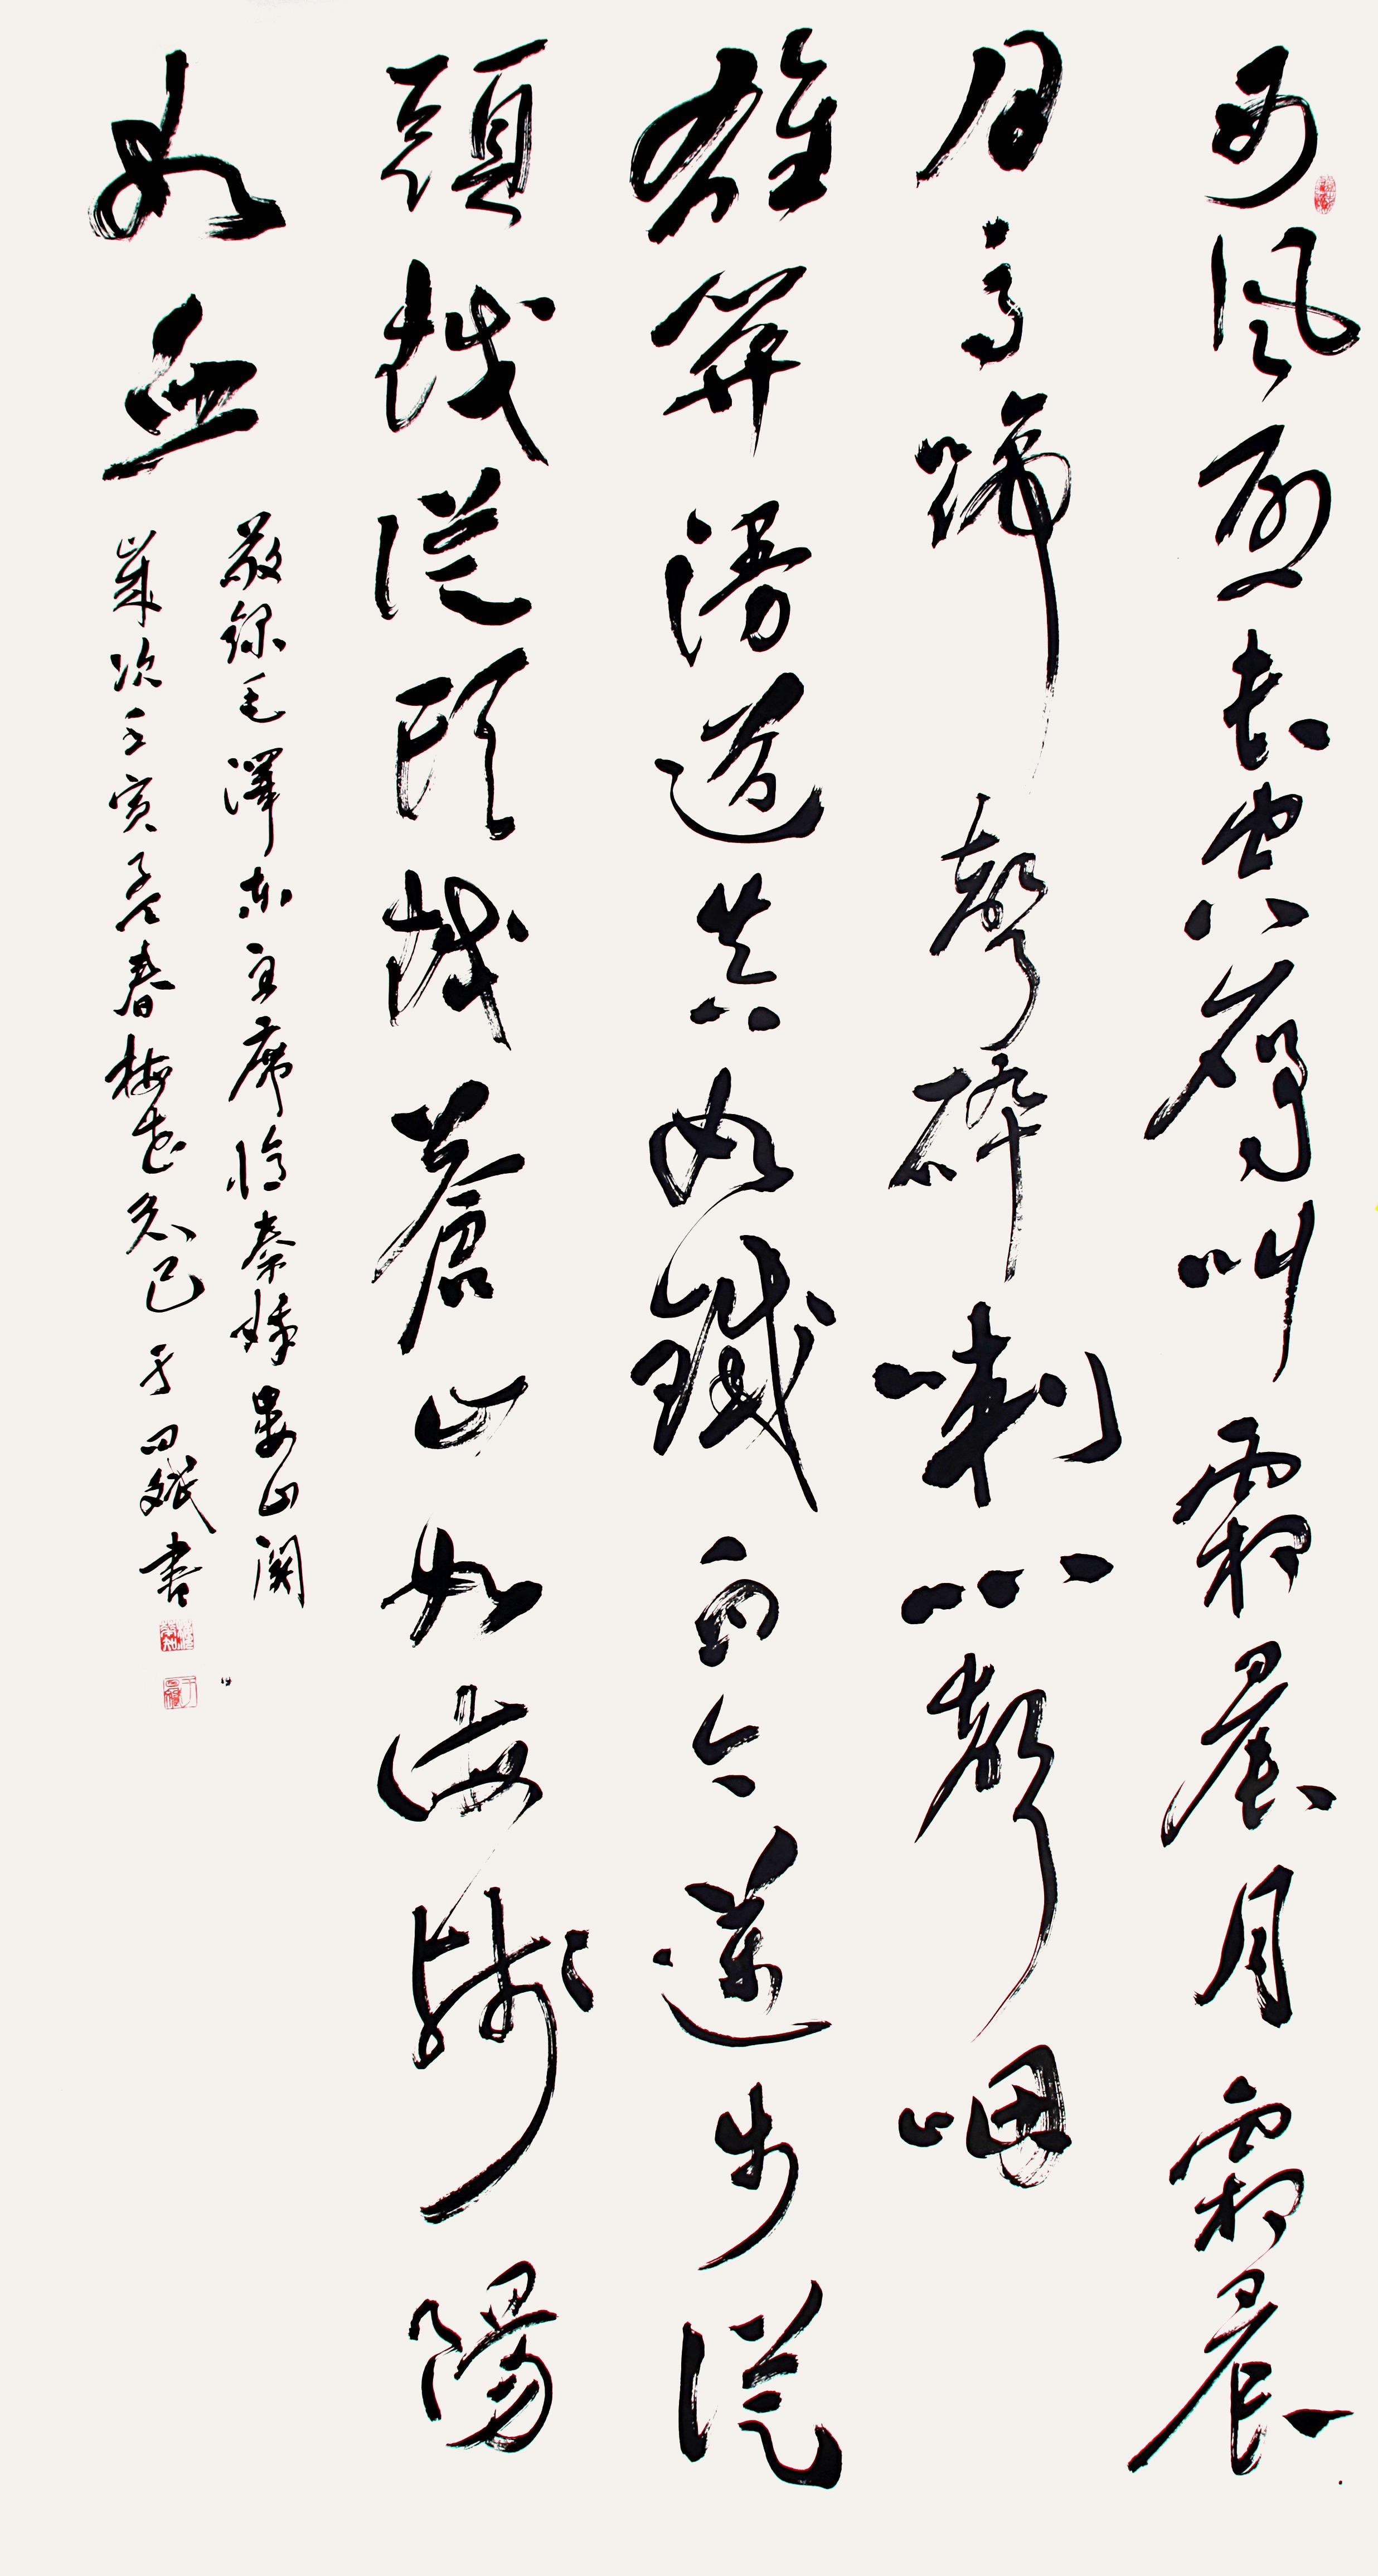 西風烈長空雁叫霜晨月霜晨
月馬蹄聲碎喇叭聲咽
雄關漫道真如鐵而今邁步從
頭越從頭越蒼山如海殘陽
如血
敬錄毛澤東主席憶秦娥婁山關
歲次壬寅孟春梅花知己于斌書